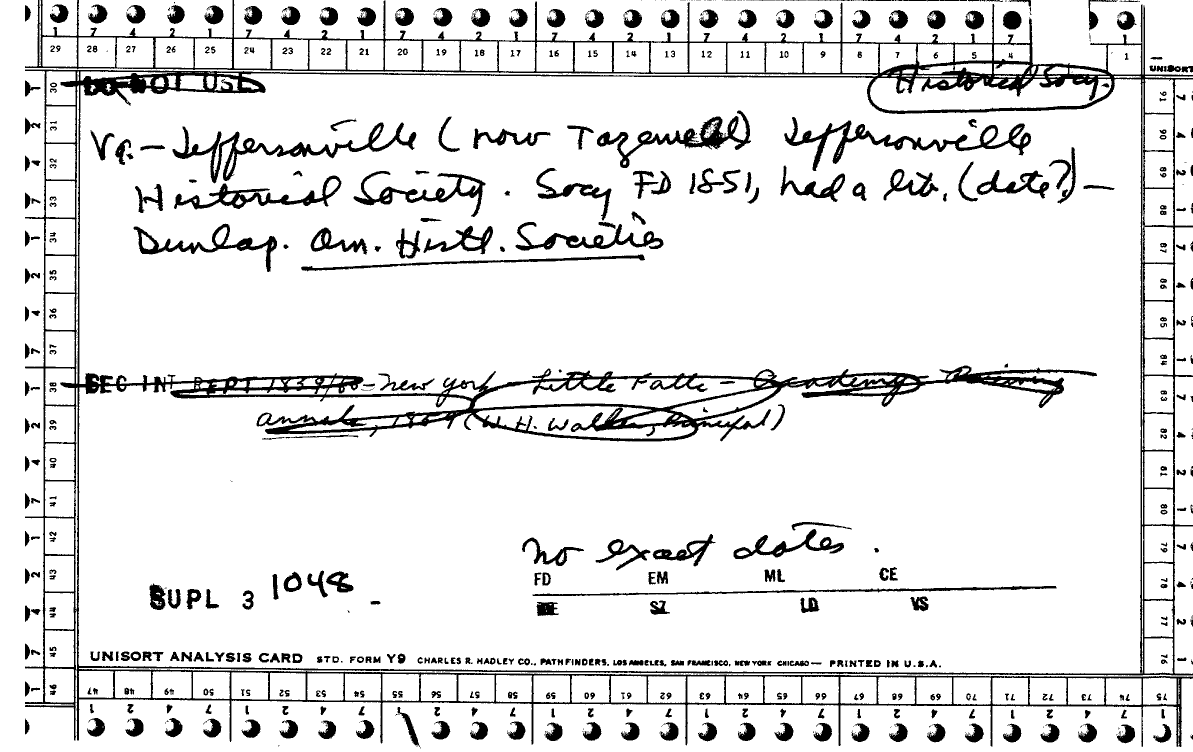 1 7 4 2 1 7 4 2 1 7 4 2 1 7 4 2 1 7 4 2 1 7 4 2 1 7 1
29 28 27 26 25 24 23 22 21 20 19 18 17 16 15 14 13 12 11 10 9 8 7 6 5 4 1
UNISORT
DO NOT USE
Historical Socy.
Va.- Jeffersonville (now Tazewell) Jeffersonville
Historical Society. Socy FD 1851, had a lib. (date?) -
Dunlap. Am. Histl. Societies
SEC INT REPT 1839/60 - New York - Little Falls - Academy
annals, 1869 (W. H. Walker, Principal)
no exact dates.
FD EM ML CE
SZ LD VS
SUPL 3 1048 -
UNISORT ANALYSIS CARD STD. FORM Y9 CHARLES R. HADLEY CO., PATHFINDERS, LOS ANGELES, SAN FRANCISCO, NEW YORK CHICAGO — PRINTED IN U.S.A.
47 48 49 50 51 52 53 54 55 56 57 58 59 60 61 62 63 64 65 66 67 68 69 70 71 72 73 74 75